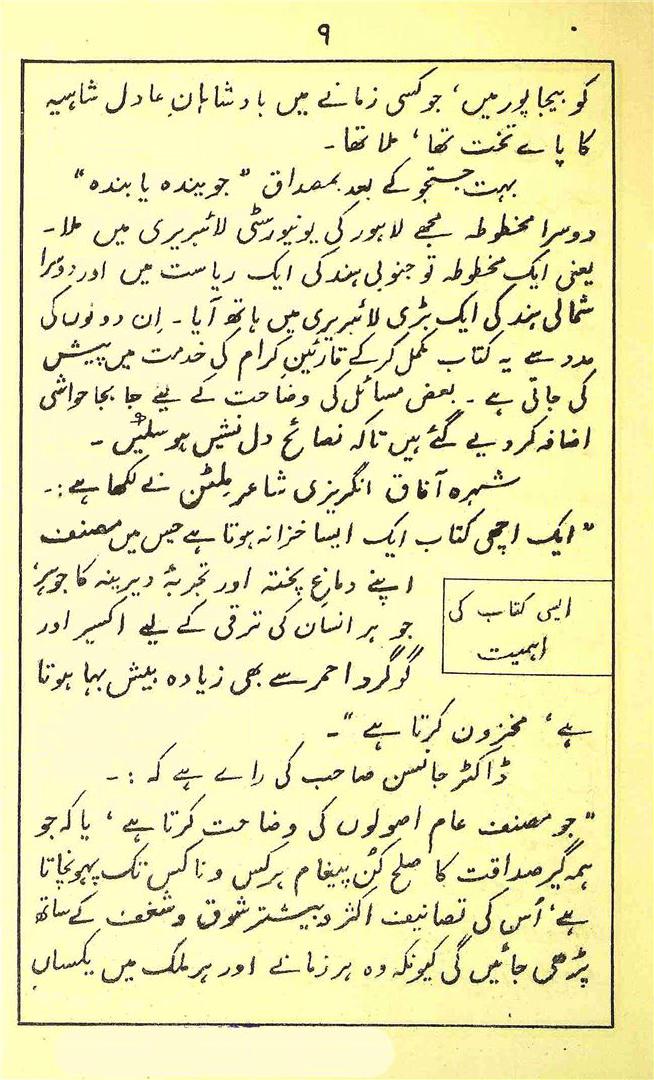 ۹
کو بیجاپور میں، جو کسی زمانے میں بادشاہانِ عادل شاہیہ
کا پاے تخت تھا، ملا تھا۔
بہت جستجو کے بعد بمصداق "جویندہ یا بندہ"
دوسرا مخطوطہ مجھے لاہور کی یونیورسٹی لائبریری میں ملا۔
یعنی ایک مخطوطہ تو جنوبی ہند کی ایک ریاست میں اور دوسرا
شمالی ہند کی ایک بڑی لائبریری میں ہاتھ آیا۔ اِن دونوں کی
مدد سے یہ کتاب مکمل کرکے قارئین کرام کی خدمت میں پیش
کی جاتی ہے۔ بعض مسائل کی وضاحت کے لیے جا بجا حواشی
اضافہ کر دیے گئے ہیں تاکہ نصائح دل نشیں ہو سکیں۔
شہرہ آفاق انگریزی شاعر مِلٹن نے لکھا ہے:۔
"ایک اچھی کتاب ایک ایسا خزانہ ہوتا ہے جس میں مصنف
اپنے دماغِ پختہ اور تجربۂ دیرینہ کا جوہر،
ایسی کتاب کی
اہمیت
جو ہر انسان کی ترقی کے لیے اکسیر اور
گوگرد احمر سے بھی زیادہ بیش بہا ہوتا
ہے، مخزون کرتا ہے"۔
ڈاکٹر جانسن صاحب کی راے ہے کہ:۔
"جو مصنف عام اصولوں کی وضاحت کرتا ہے، یا کہ جو
ہمہ گیر صداقت کا صلح کُن پیغام ہر کس و ناکس تک پہونچاتا
ہے، اُس کی تصانیف اکثر و بیشتر شوق و شغف کے ساتھ
پڑھی جائیں گی کیونکہ وہ ہر زمانے اور ہر ملک میں یکساں